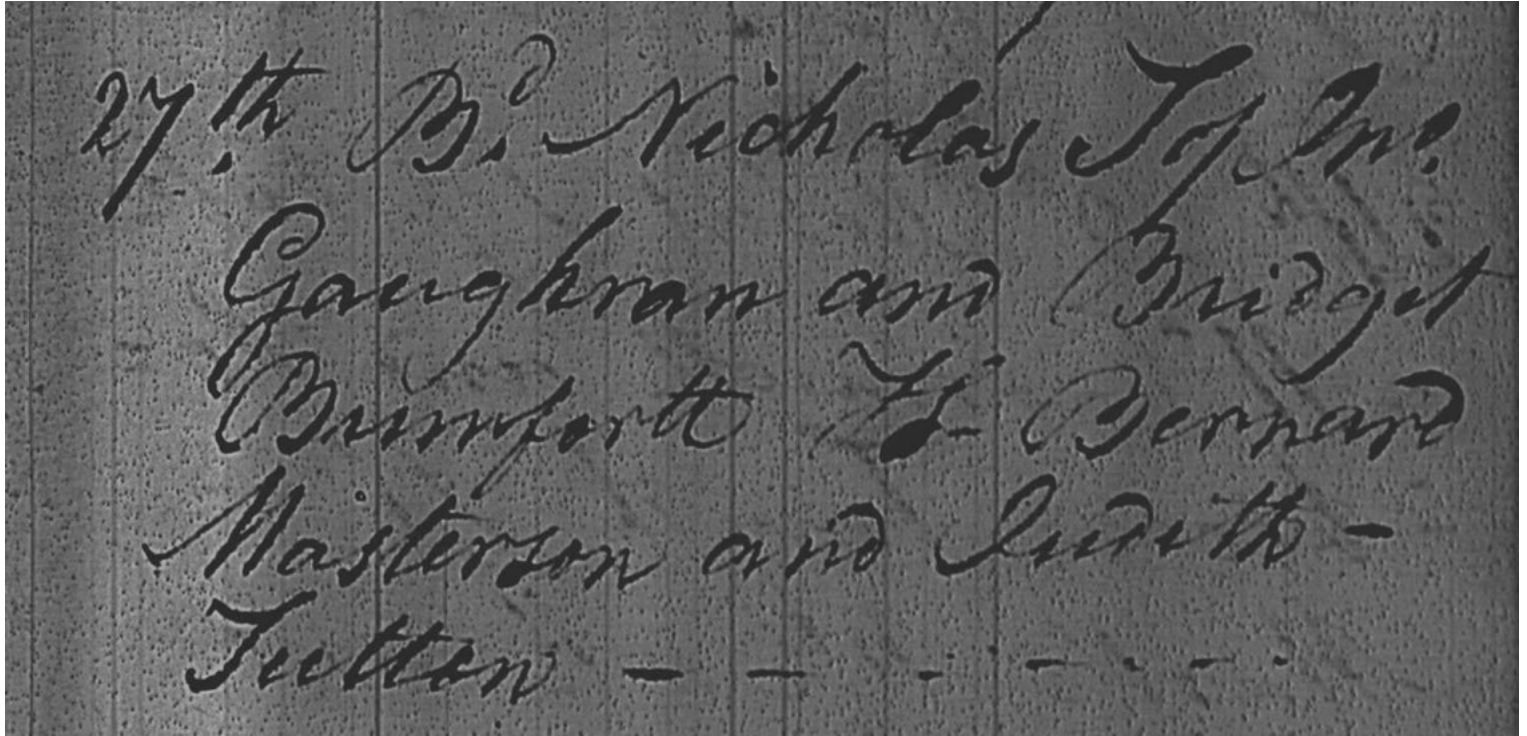 27th. Bd. Nicholas S of Jno.
Gaughran and Bridget
Bumfortt Ss Bernard
Masterson and Judith -
Tutton - - - - - - -